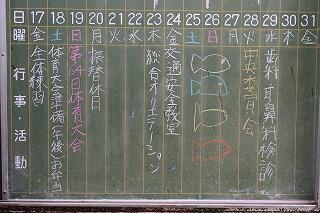 日 17 18 19 20 21 22 23 24 25 26 27 28 29 30 31
曜 金 土 日 月 火 水 木 金 土 日 月 火 水 木 金
行事・活動
全体練習
体育大会準備(午後)お弁当
第64回体育大会
振替休日
総合オリエンテーション
交通安全教室
中央委員会
歯科・耳鼻科検診